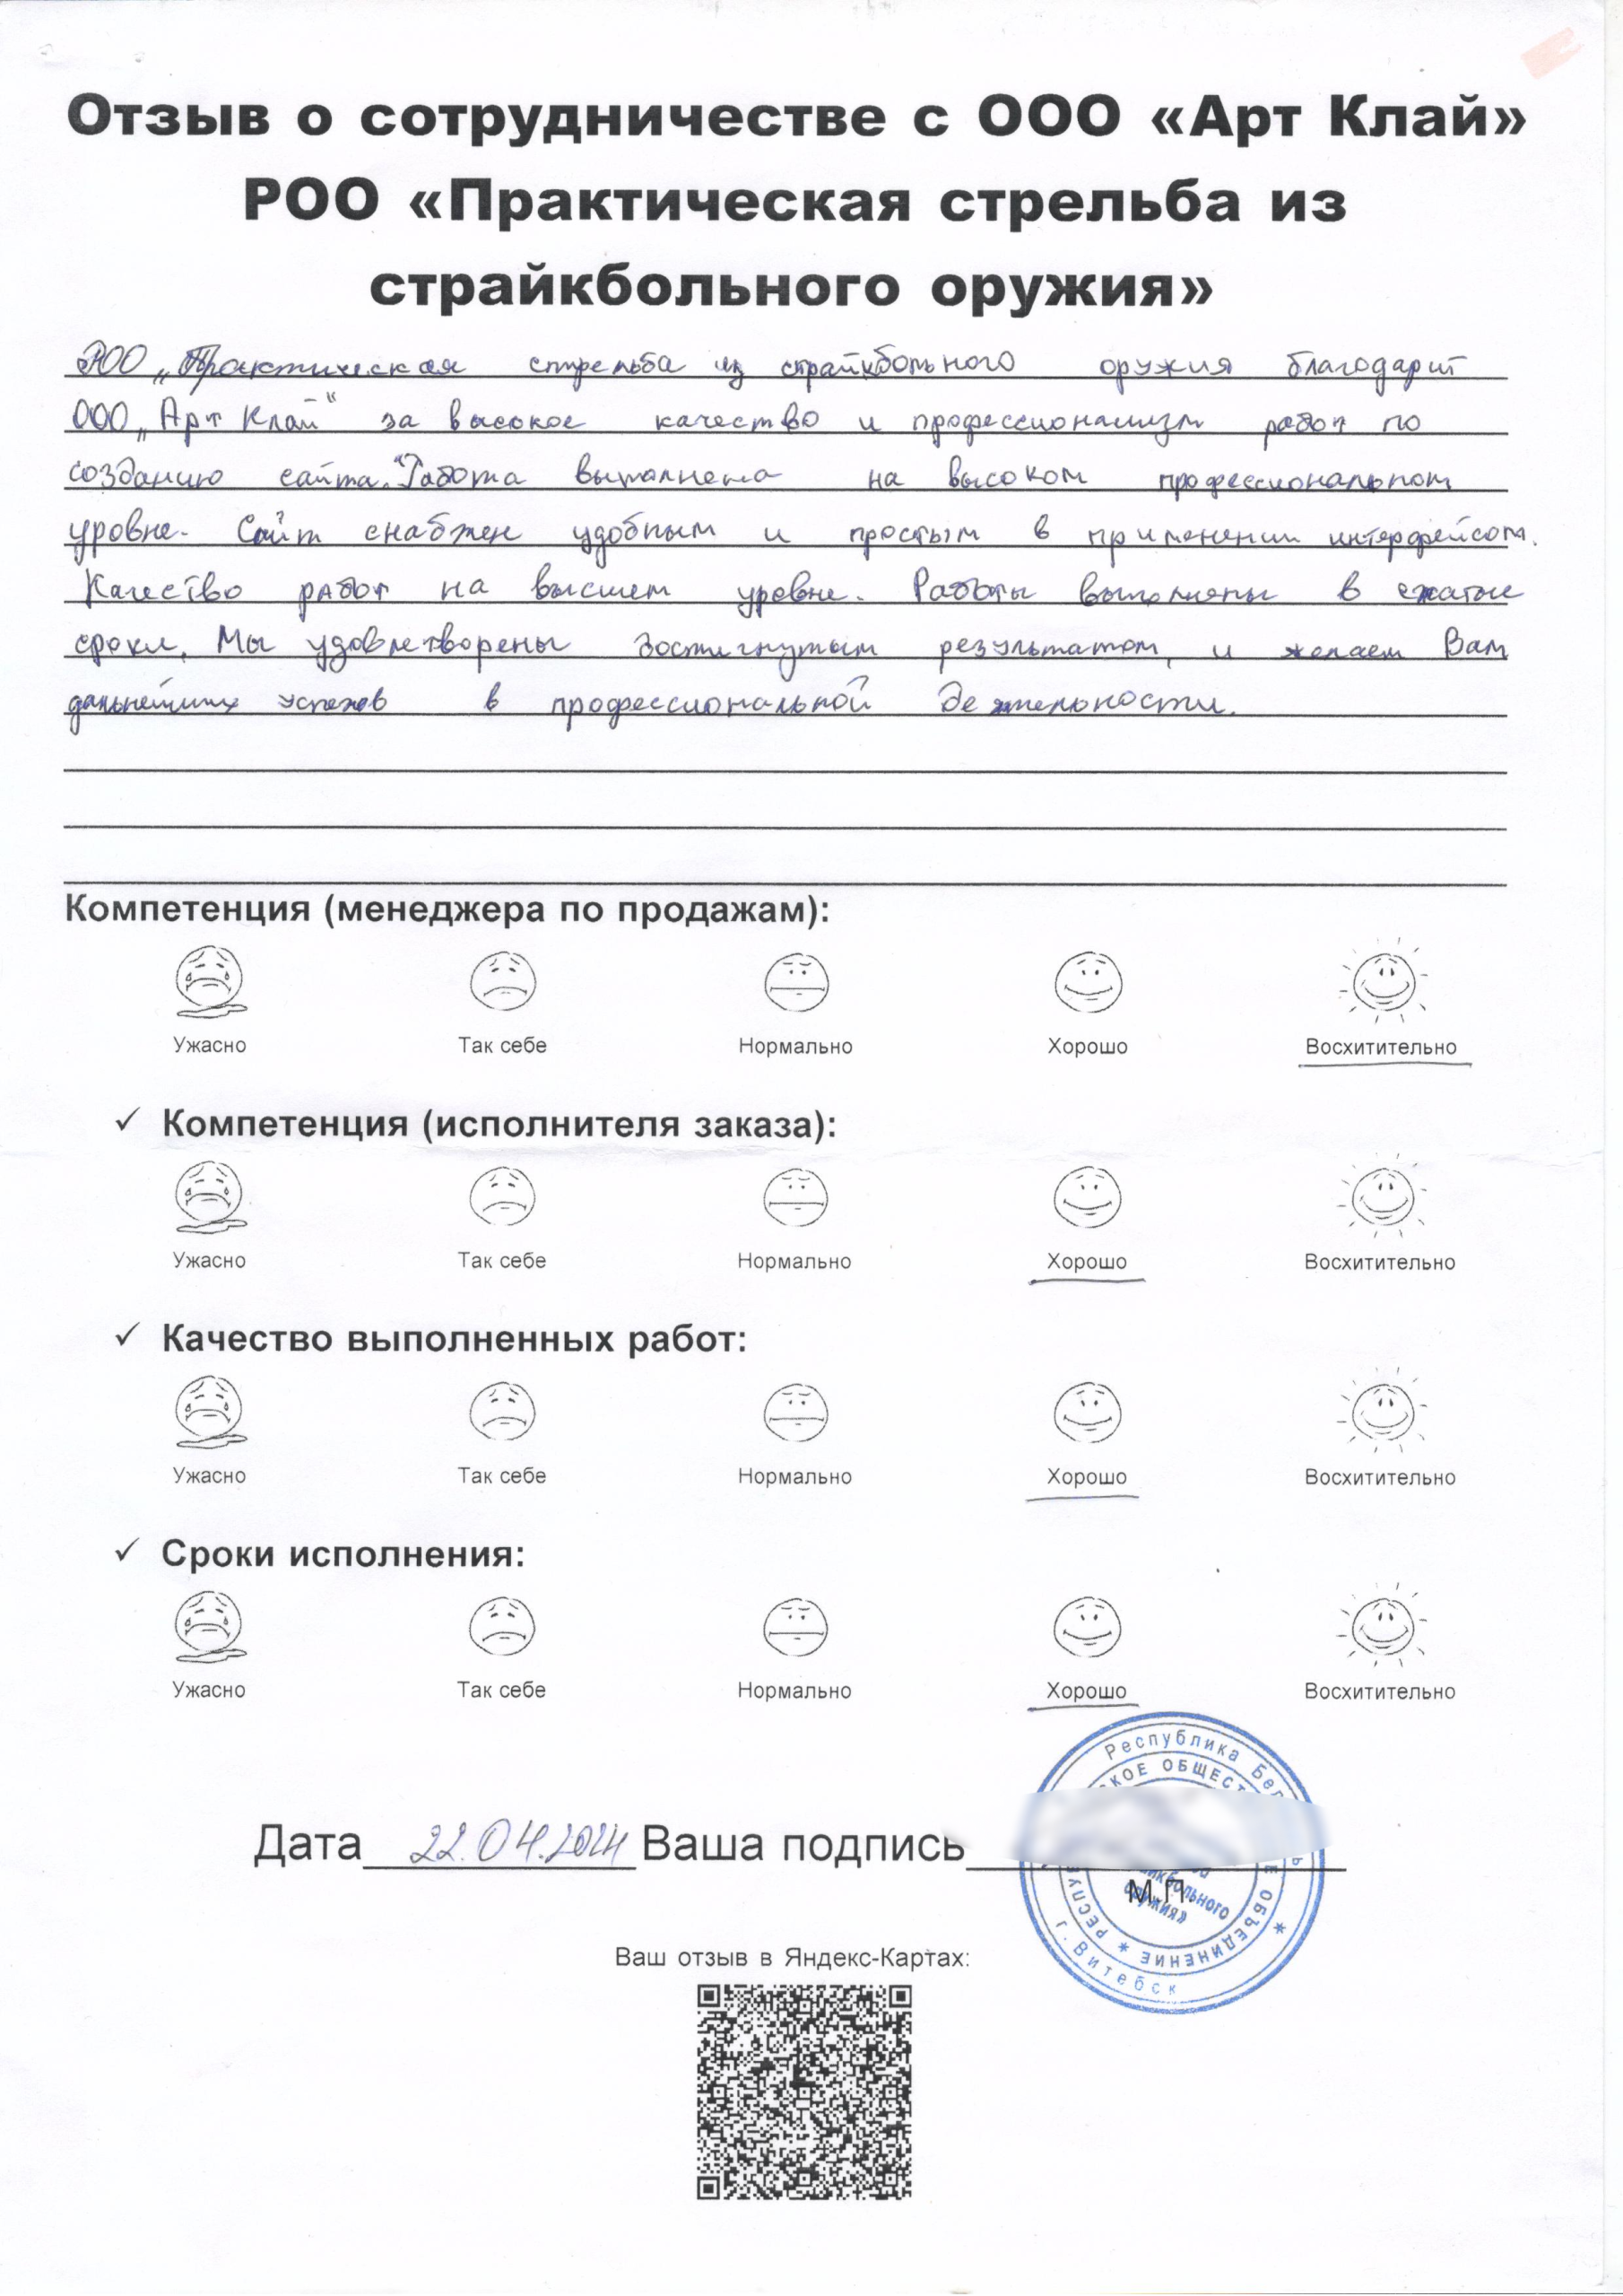 Отзыв о сотрудничестве с ООО «Арт Клай»
РОО «Практическая стрельба из
страйкбольного оружия»
РОО „Практическая стрельба из страйкбольного оружия благодарит
ООО „Арт Клай“ за высокое качество и профессионализм работ по
созданию сайта.“ Работа выполнена на высоком профессиональном
уровне. Сайт снабжен удобным и простым в применении интерфейсом.
Качество работ на высшем уровне. Работы выполнены в сжатые
сроки. Мы удовлетворены достигнутым результатом, и желаем Вам
дальнейших успехов в профессиональной деятельности.
Компетенция (менеджера по продажам):
Ужасно Так себе Нормально Хорошо Восхитительно
✓ Компетенция (исполнителя заказа):
Ужасно Так себе Нормально Хорошо Восхитительно
✓ Качество выполненных работ:
Ужасно Так себе Нормально Хорошо Восхитительно
✓ Сроки исполнения:
Ужасно Так себе Нормально Хорошо Восхитительно
Республика
ОБЩЕСТ
Дата 22.04.2024 Ваша подпись
М.П.
оружия»
ОБЪЕДИНЕНИЕ
г. Витебск
Ваш отзыв в Яндекс-Картах: